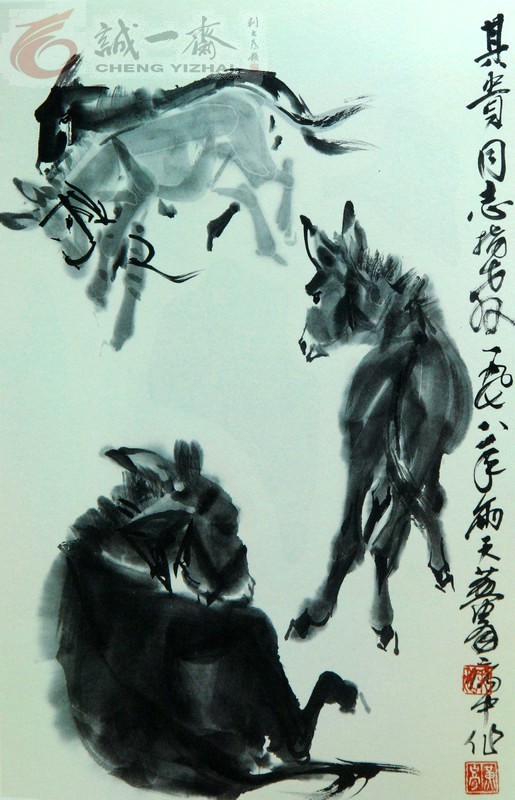 誠一齋
CHENG YIZHAI
其贵同志指 一九七八年雨天黄胄病中作